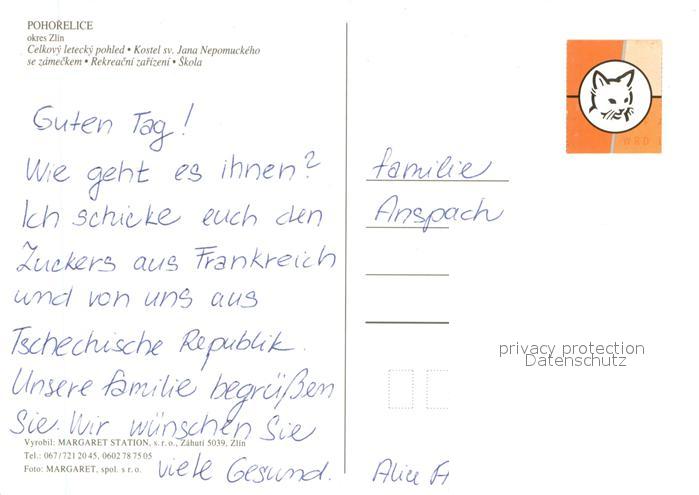 POHOŘELICE
okres Zlín
Celkový letecký pohled • Kostel sv. Jana Nepomuckého
se zámečkem • Rekreační zařízení • Škola
Guten Tag!
Wie geht es ihnen?
Ich schicke euch den
Zuckers aus Frankreich
und von uns aus
Tschechische Republik.
Unsere familie begrüßen
Sie. Wir wünschen Sie
viele Gesund.
Vyrobil: MARGARET STATION, s. r. o., Záhutí 5039, Zlín
Tel.: 067/721 20 45, 0602 78 75 05
Foto: MARGARET, spol. s r. o.
familie
Anspach
privacy protection
Datenschutz
Alice